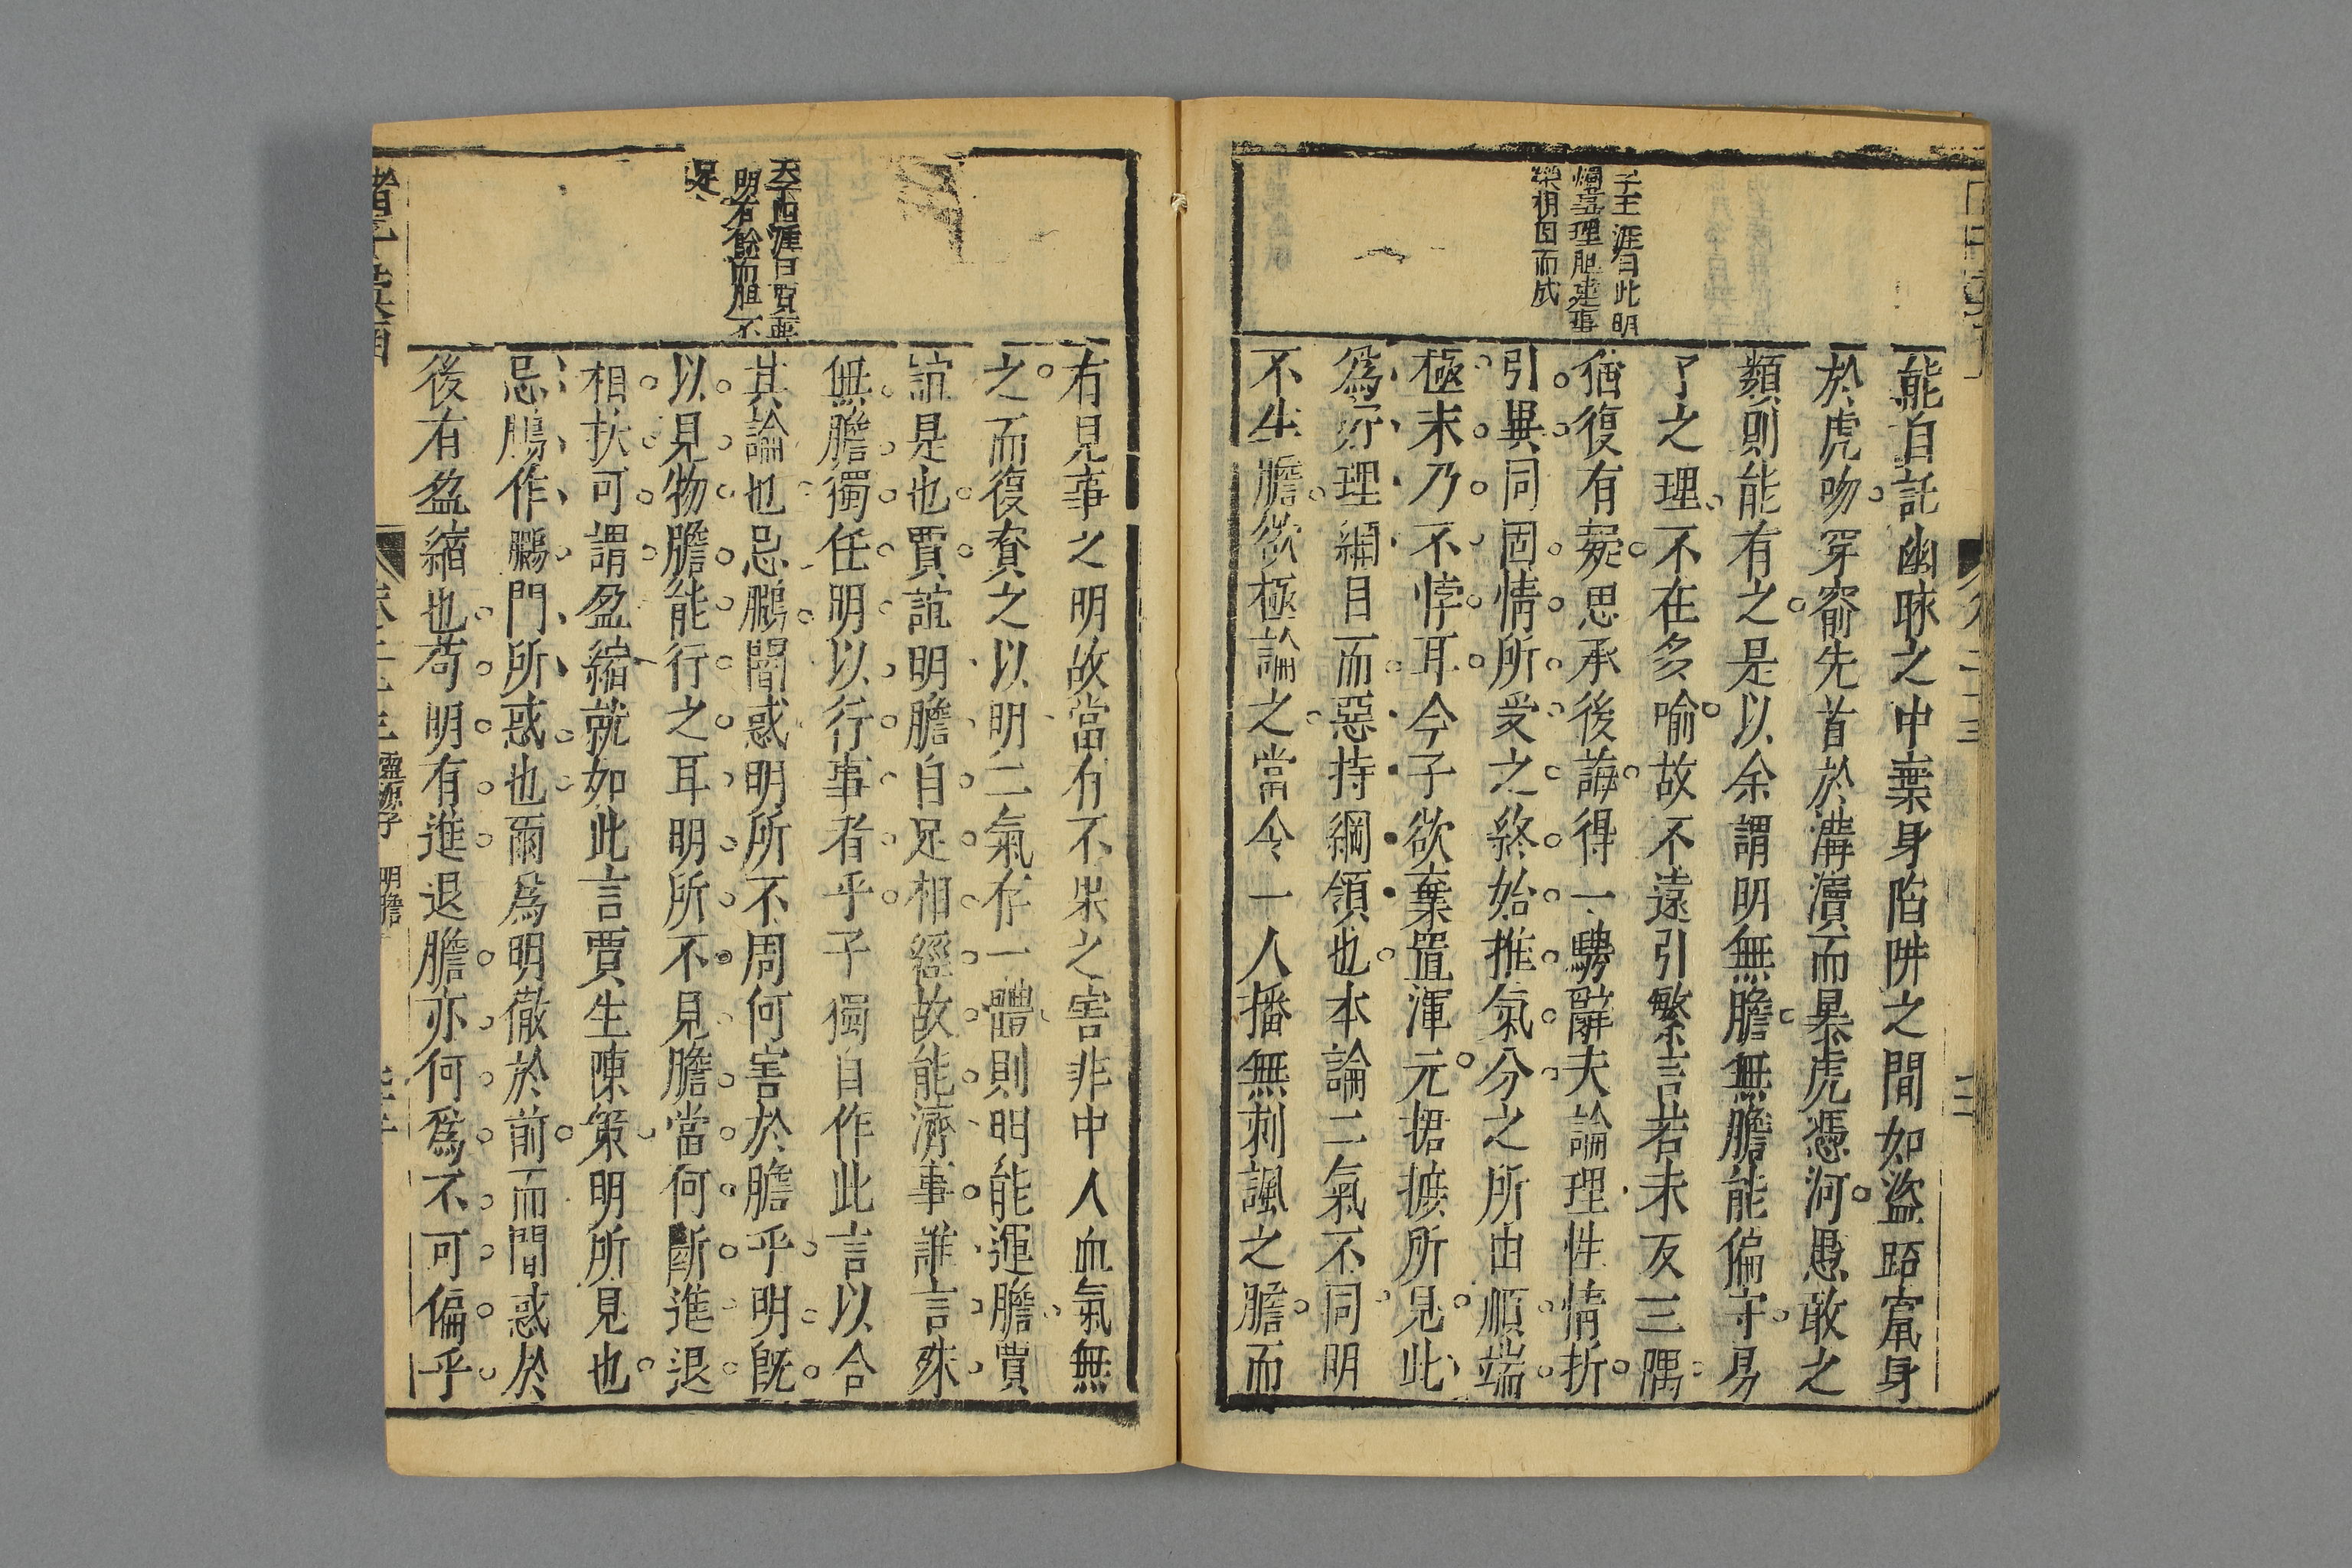 子王涯曰此明
燭幕理胆建事
業相因而成
能自託幽昧之中棄身陷阱之間如盜跖竄身
於虎吻穿窬先首於溝瀆而暴虎馮河愚敢之
類則能有之是以余謂明無膽無膽能偏守易
了之理不在多喻故不遠引繁言若未反三隅
猶復有疑思承後誨得一騁辭夫論理性情折
引異同固情所受之終始推氣分之所由順端
極末乃不悖耳今子欲棄置渾元捃摭所見此
為好理網目而惡持綱領也本論二氣不同明
不生膽欲極論之當令一人播無刺諷之膽而
天下西涯曰賈誼
明有餘而胆不
足
有見事之明故當有不果之害非中人血氣無
之而復資之以明二氣存一體則明能運膽賈
誼是也賈誼明膽自足相經故能濟事誰言殊
無膽獨任明以行事者乎子獨自作此言以合
其論也忌鵩闇惑明所不周何害於膽乎明既
以見物膽能行之耳明所不見膽當何斷進退
相扶可謂盈縮就如此言賈生陳策明所見也
忌鵩作鵩闇所惑也爾為明徹於前而闇惑於
後有盈縮也苟明有進退膽亦何為不可偏乎